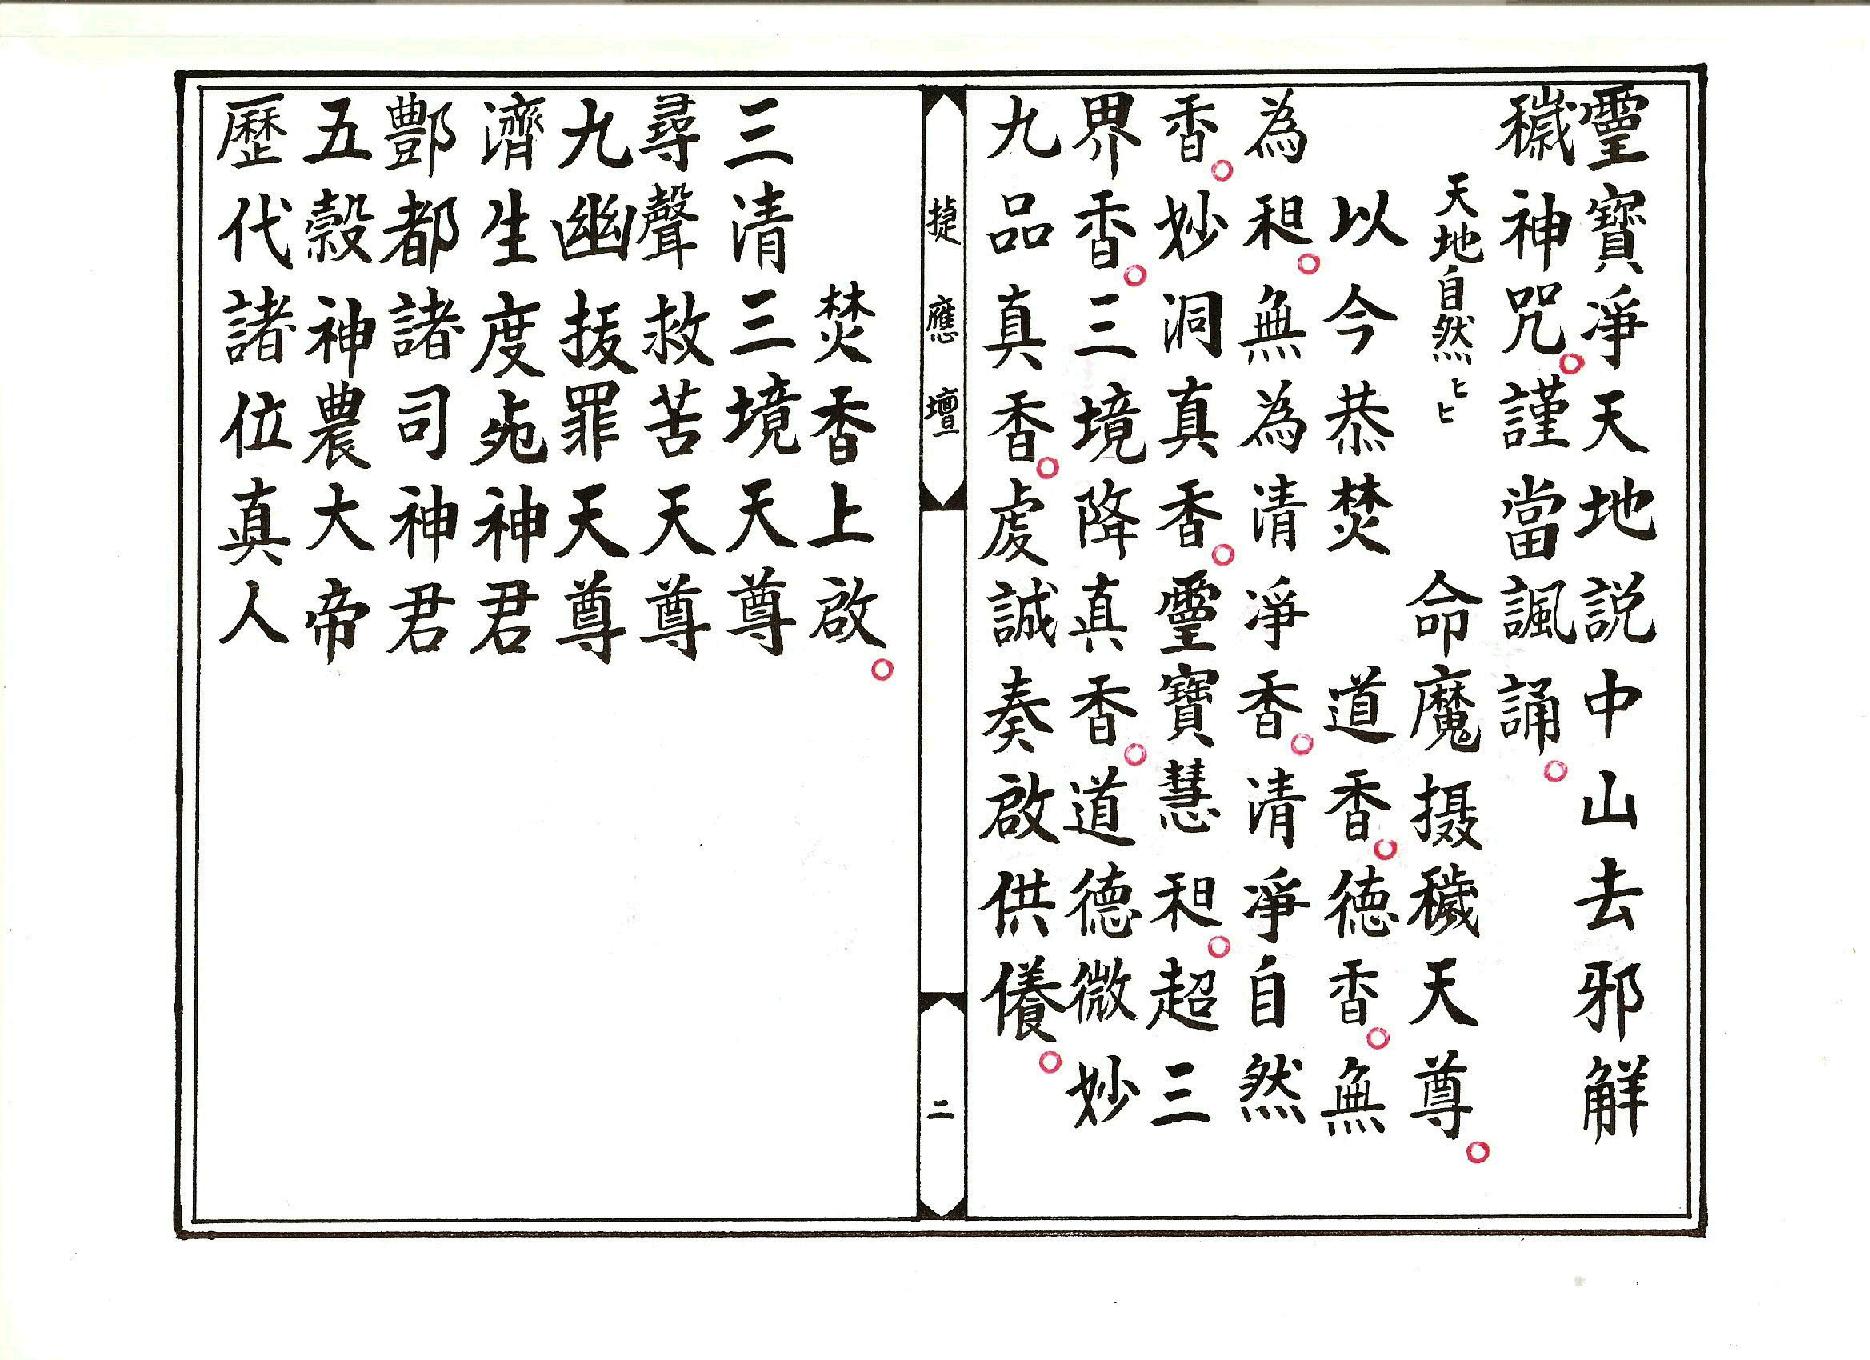 靈寶淨天地説中山去邪解
穢神咒。謹當諷誦。
天地自然ヒヒ
命魔摄穢天尊。
以今恭焚 道香。德香。無
為香。無為清淨香。清淨自然
香。妙洞真香。靈寶慧香。超三
界香。三境降真香。道德微妙
九品真香。虔誠奏啟供養。
捷應壇
二
焚香上啟。
三清三境天尊
尋聲救苦天尊
九幽拔罪天尊
濟生度死神君
酆都諸司神君
五穀神農大帝
歷代諸位真人